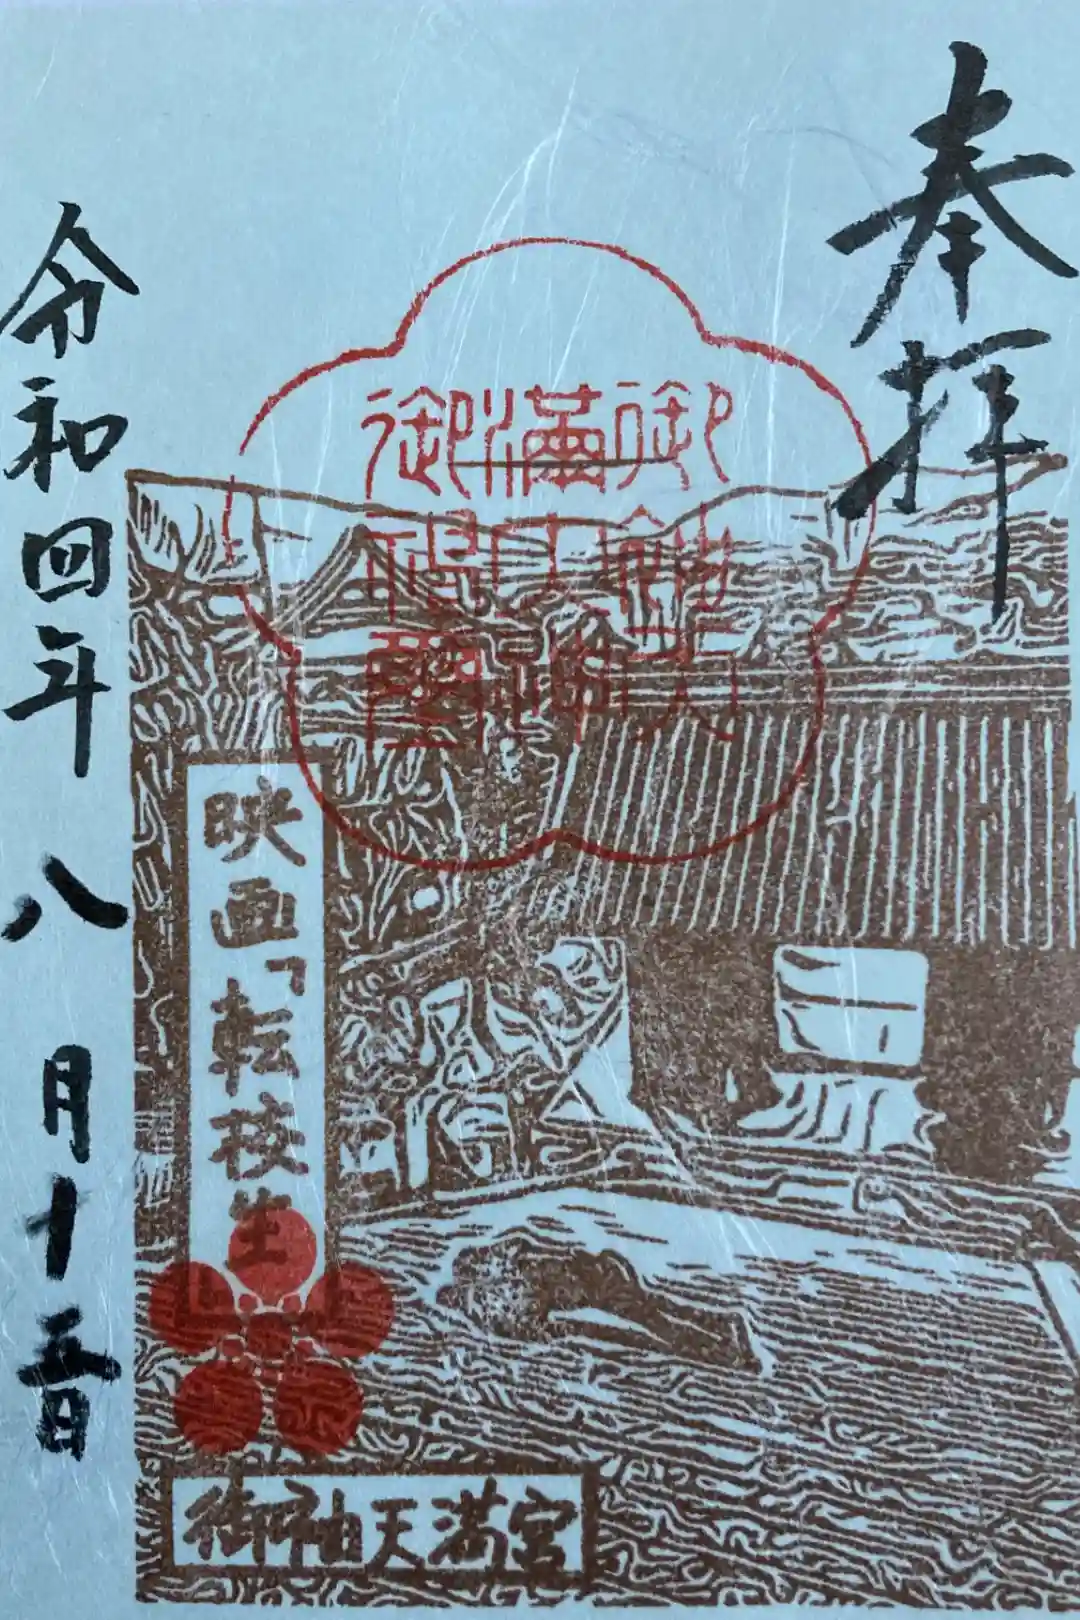 奉拝
御袖天
満大神
映画「転校生
令和四年八月十五日
御袖天満宮